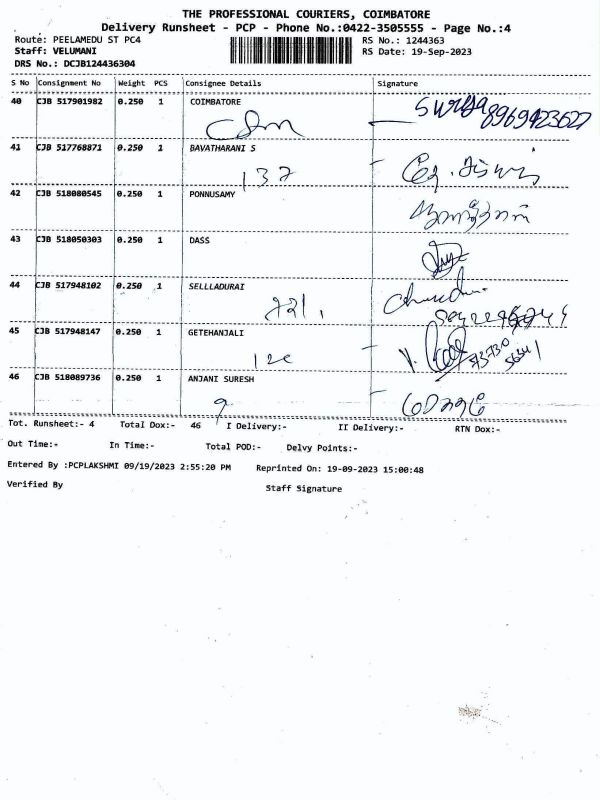 THE PROFESSIONAL COURIERS, COIMBATORE
Delivery Runsheet - PCP - Phone No.:0422-3505555 - Page No.:4
Route: PEELAMEDU ST PC4 RS No.: 1244363
Staff: VELUMANI RS Date: 19-Sep-2023
DRS No.: DCJB124436304
S No Consignment No Weight PCS Consignee Details Signature
40 CJB 517901982 0.250 1 COIMBATORE
41 CJB 517768871 0.250 1 BAVATHARANI S
137
42 CJB 518080545 0.250 1 PONNUSAMY
43 CJB 518050303 0.250 1 DASS
44 CJB 517948102 0.250 1 SELLLADURAI
45 CJB 517948147 0.250 1 GETEHANJALI
46 CJB 518089736 0.250 1 ANJANI SURESH
9
Tot. Runsheet:- 4 Total Dox:- 46 I Delivery:- II Delivery:- RTN Dox:-
Out Time:- In Time:- Total POD:- Delvy Points:-
Entered By :PCPLAKSHMI 09/19/2023 2:55:20 PM Reprinted On: 19-09-2023 15:00:48
Verified By Staff Signature